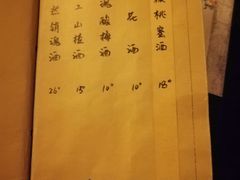 桃蜜酒 18°
花酒 10°
酸梅酒 10°
上山楂酒 15°
销魂酒 26°